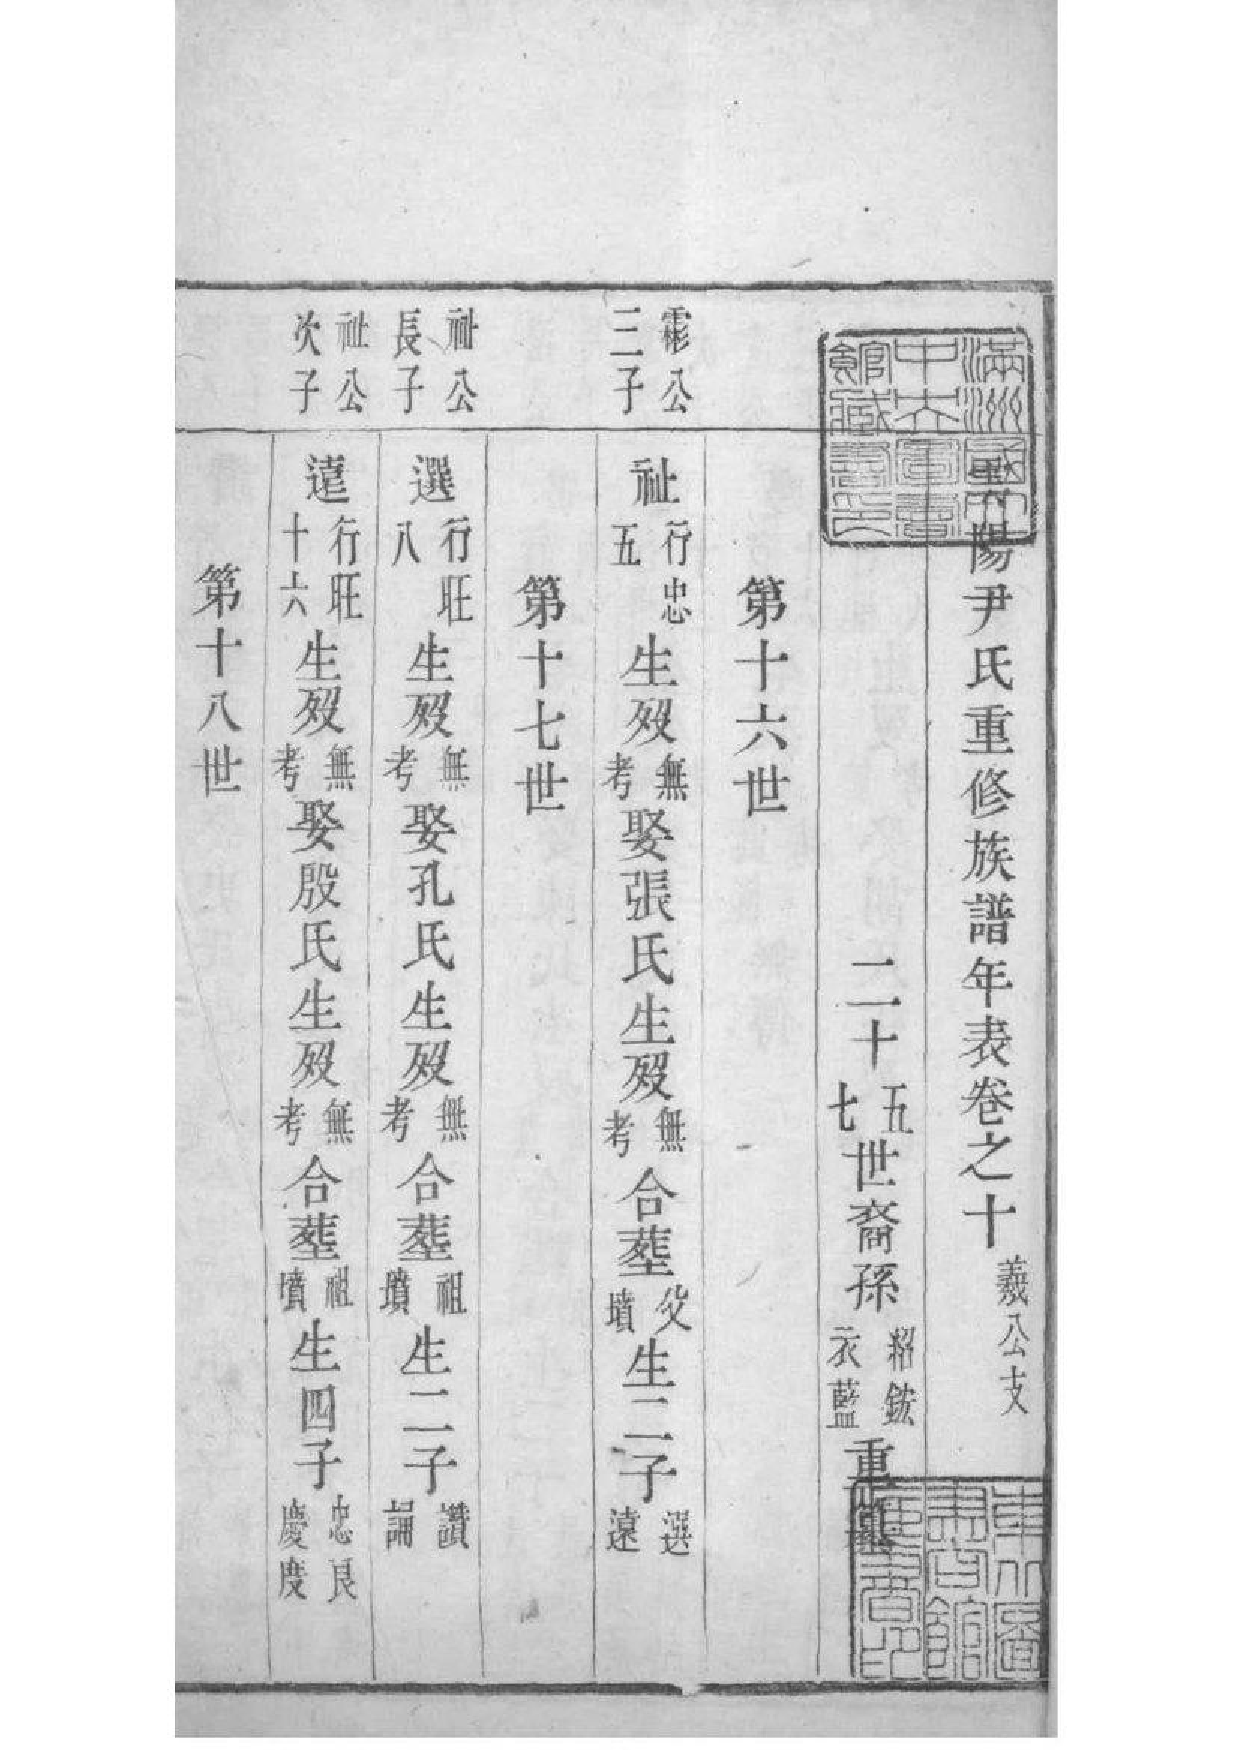 陽尹氏重修族譜年表卷之十 羲公支
二十五七世裔孫 紹鋐 衣藍 重
第十六世
霦公三子 祉 行忠五 生歿無考 娶張氏生歿無考 合塟父墳 生二子 選 遠
第十七世
祉公長子 選 行旺八 生歿無考 娶孔氏生歿無考 合塟祖墳 生二子 讚 誦
祉公次子 遠 行旺十六 生歿無考 娶殷氏生歿無考 合塟祖墳 生四子 忠良 慶度
第十八世
滿洲國中央圖書館藏書之
東北圖書館藏書印